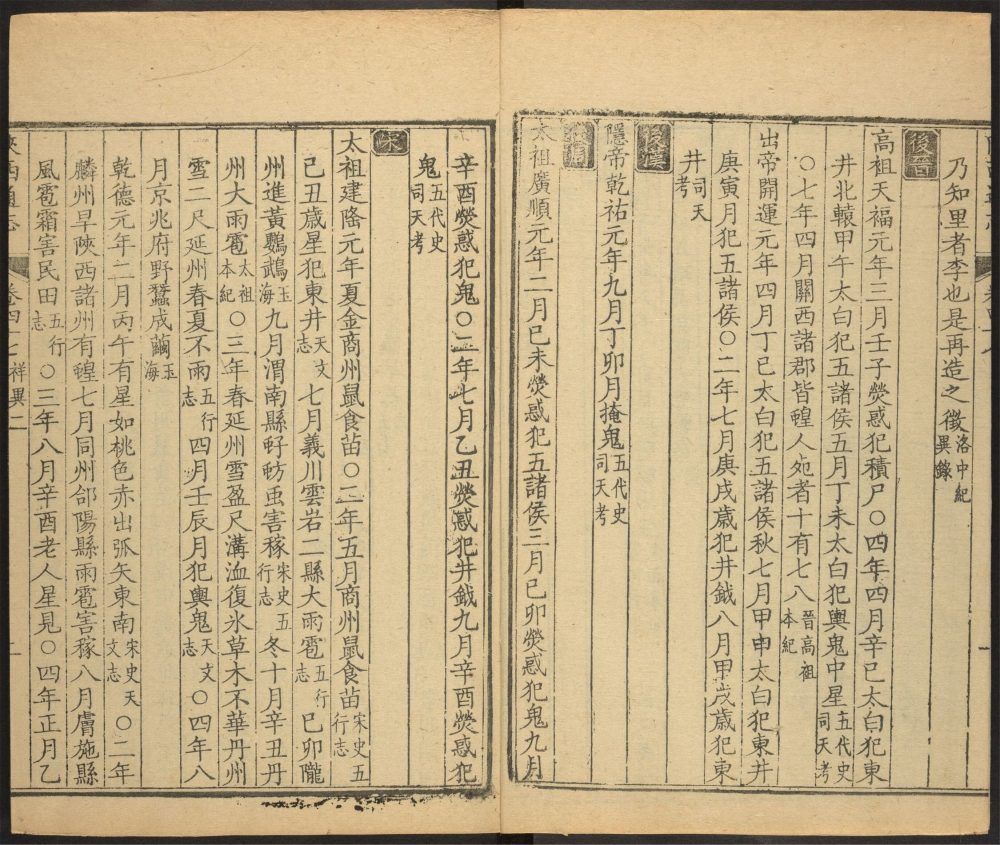 乃知里者李也是再造之徵洛中紀異錄
後晉
高祖天福元年三月壬子熒惑犯積尸〇四年四月辛巳太白犯東
井北轅甲午太白犯五諸侯五月丁未太白犯輿鬼中星五代史司天考
〇七年四月關西諸郡皆蝗人死者十有七八晉高祖本紀
出帝開運元年四月丁巳太白犯五諸侯秋七月甲申太白犯東井
庚寅月犯五諸侯〇二年七月庚戌歲犯井鉞八月甲戌歲犯東
井司天考
後漢
隱帝乾祐元年九月丁卯月掩鬼五代史司天考
後周
太祖廣順元年二月已未熒惑犯五諸侯三月已卯熒惑犯鬼九月
辛酉熒惑犯鬼〇二年七月乙丑熒惑犯井鉞九月辛酉熒惑犯
鬼五代史司天考
宋
太祖建隆元年夏金商州鼠食苗〇二年五月商州鼠食苗宋史五行志
己丑歲星犯東井天文志七月義川雲岩二縣大雨雹五行志已卯隴
州進黃鸚鵡玉海九月渭南縣虸蚄虫害稼宋史五行志冬十月辛丑丹
州大雨雹太祖本紀〇三年春延州雪盈尺溝洫復氷草木不華丹州
雪二尺延州春夏不雨五行志四月壬辰月犯輿鬼天文志〇四年八
月京兆府野蠶成繭玉海
乾德元年二月丙午有星如桃色赤出弧矢東南宋史天文志〇二年
麟州旱陝西諸州有蝗七月同州郃陽縣雨雹害稼八月膚施縣
風雹霜害民田五行志〇三年八月辛酉老人星見〇四年正月乙
陝西通志 卷四十七 祥異二 一